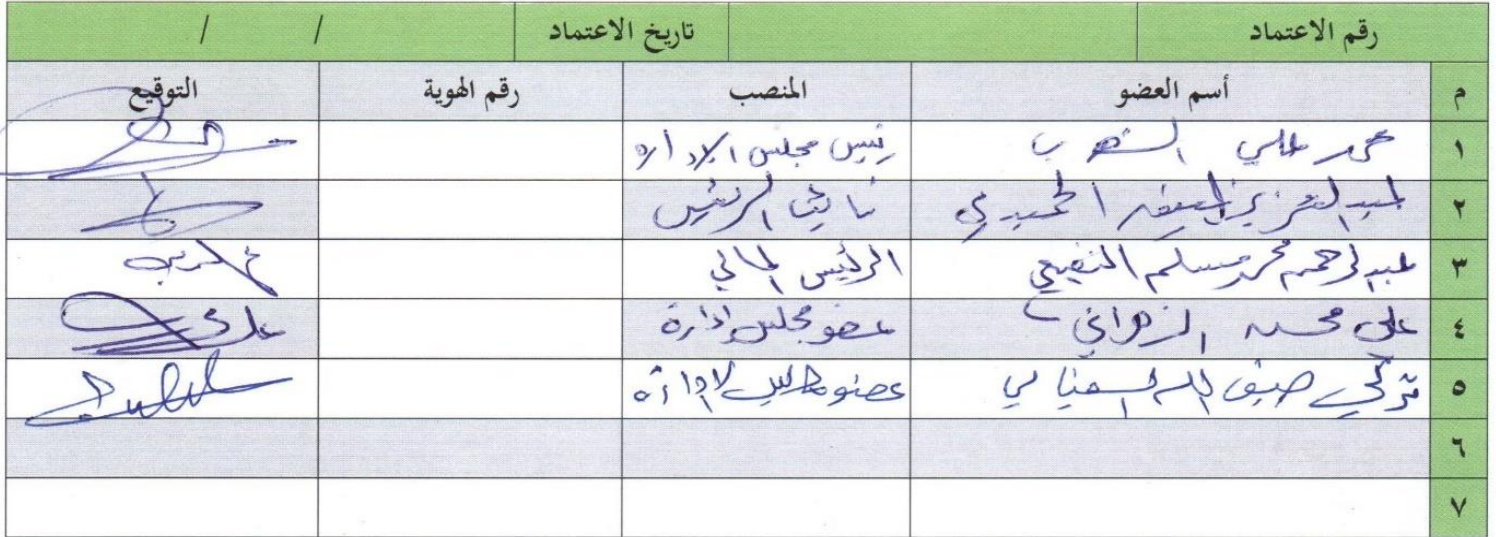 رقم الاعتماد تاريخ الاعتماد / /
م أسم العضو المنصب رقم الهوية التوقيع
١ محمد علي رئيس مجلس الادارة
٢ عبد العزيز الحميدي نائب الرئيس
٣ عبد الرحمن محمد مسلم النفيعي الرئيس المالي
٤ علي محسن الزهراني عضو مجلس ادارة
٥ تركي ضيف الله السفياني عضو مجلس الادارة
٦
٧